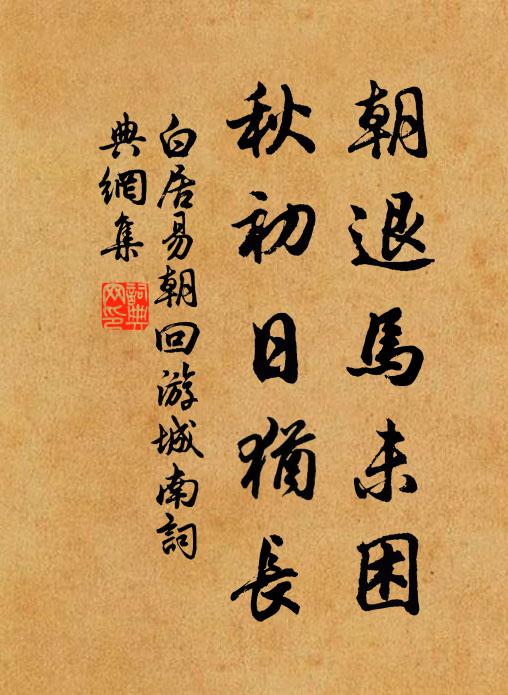 朝退馬未困
秋初日猶長
白居易朝回游城南詞
典網集
詞典網印